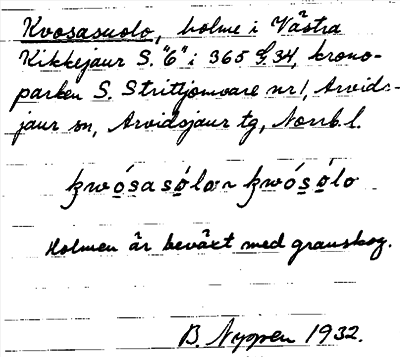 Kvosasuolo, holme i Västra
Kikkejaur S. "6" i 365 G. 34, krono-
parken S. Strittjomvare nr 1, Arvids-
jaur sn, Arvidsjaur tg, Norrb. l.
k̜wósasólo ~ k̜wósólo
Holmen är beväxt med granskog.
B. Nyppen 1932.